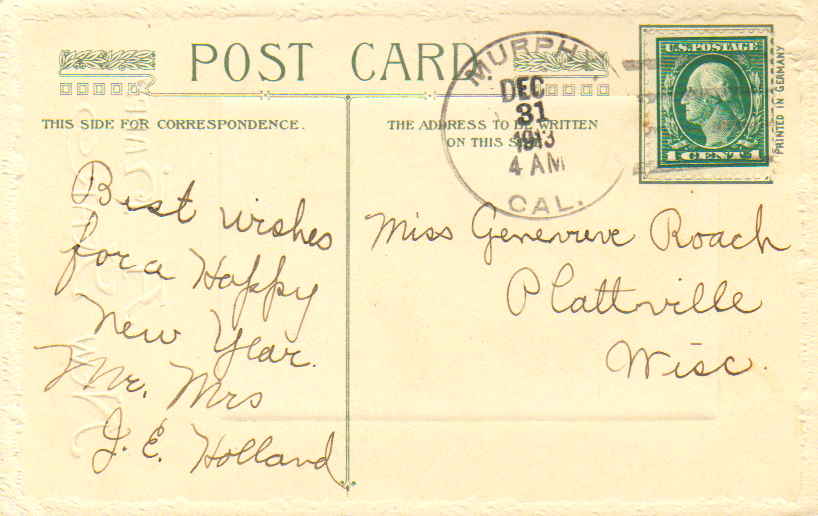 POST CARD
THIS SIDE FOR CORRESPONDENCE.
THE ADDRESS TO BE WRITTEN
ON THIS SIDE
MURPHY
DEC
31
1913
4 AM
CAL.
U.S. POSTAGE
1 CENT 1
PRINTED IN GERMANY
Best wishes
for a Happy
New Year.
Mr. Mrs
J. E. Holland
Miss Genevieve Roach
Plattville
Wisc.